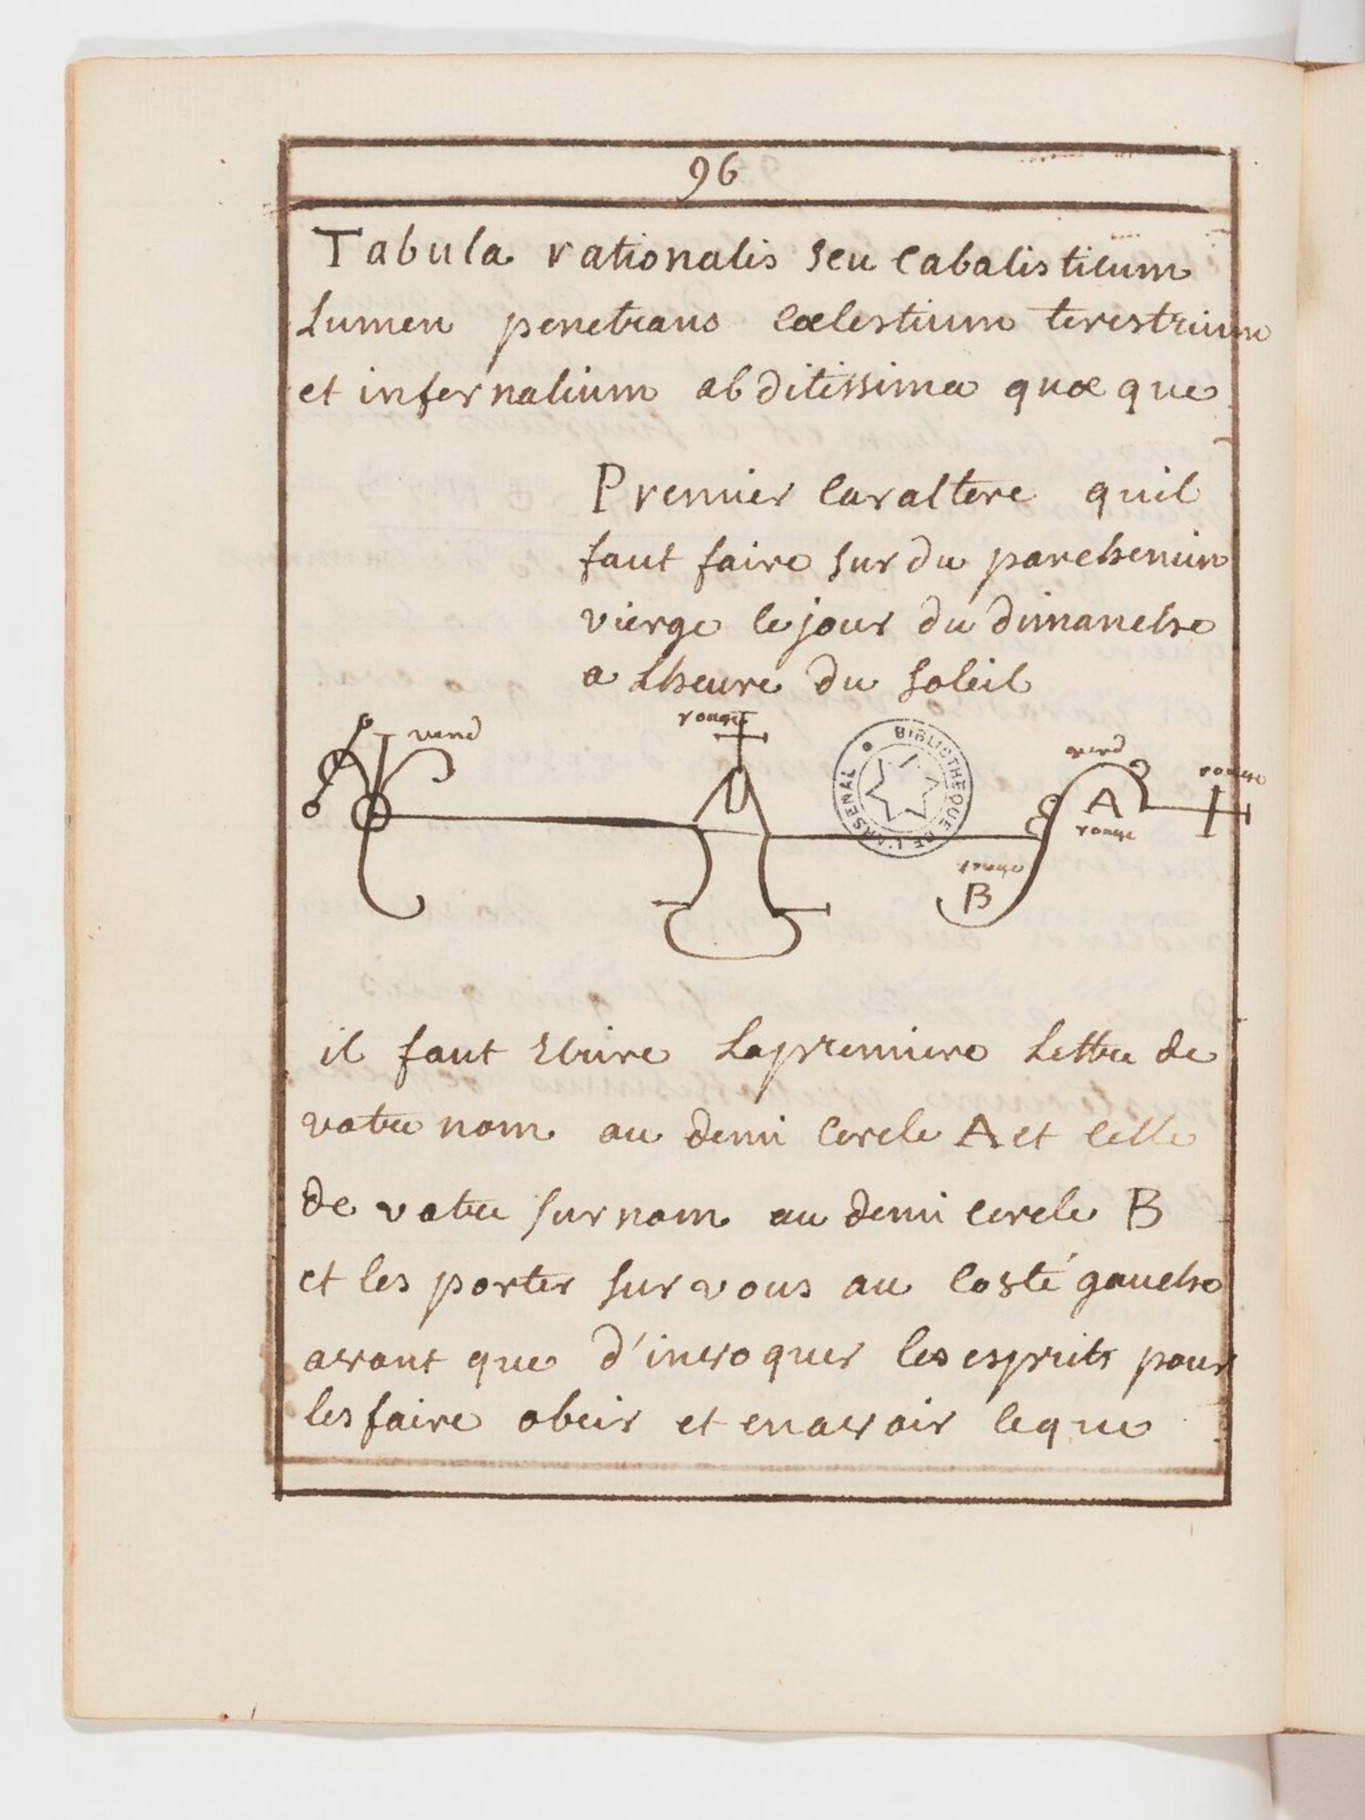 96
Tabula rationalis seu cabalisticum
Lumen penetrans cælestium terestrium
et infernalium abditissima quæque
Premier caractere quil
faut faire sur du parchemin
vierge le jour du dimanche
a Lheure du soleil
verd
rouge
BIBLIOTHEQUE DE L'ARSENAL
verd
rouge
A
rouge
rouge
B
il faut Ecrire La premiere Lettre de
votre nom au demi cercle A et celle
de votre surnom au demi cercle B
et les porter sur vous au costé gauche
avant que d'invoquer les esprits pour
les faire obeir et en avoir ce que